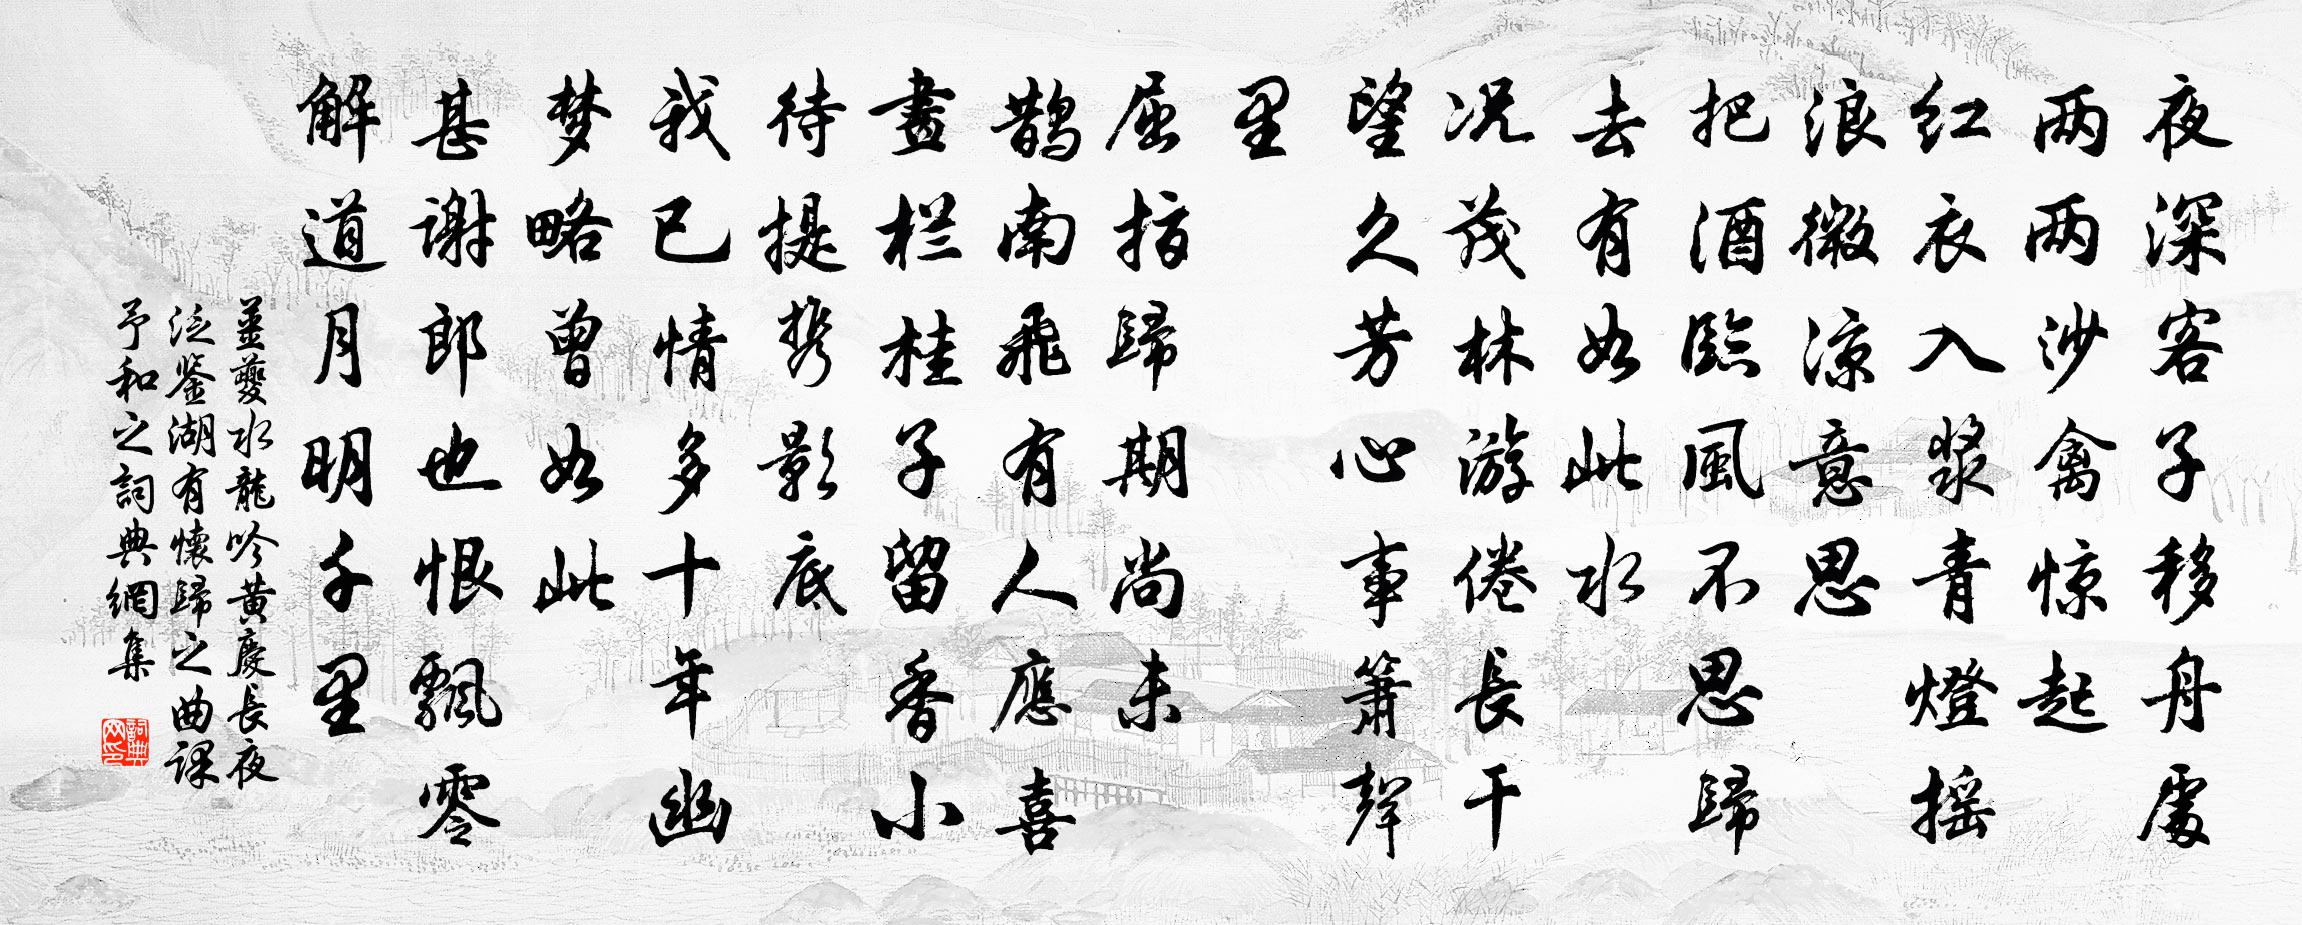 夜深客子移舟處
两两沙禽惊起
红衣入桨青燈摇
浪微涼意思
把酒臨風不思歸
去有如此水
况茂林游倦長干
望久芳心事箫聲
里
屈指歸期尚未
鹊南飛有人應喜
畫栏桂子留香小
待提携影底
我已情多十年幽
梦略曾如此
甚謝郎也恨飄零
解道月明千里
姜夔水龍吟黄慶長夜
泛鉴湖有懷歸之曲课
予和之詞典網集
詞典网印